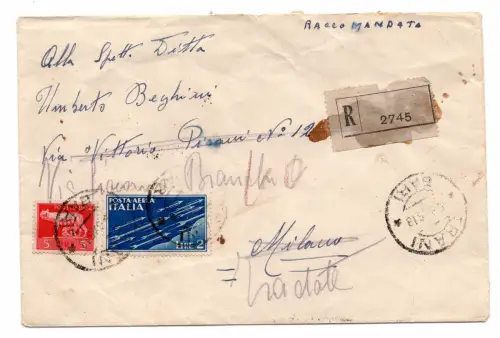 RACCOMANDATA
Alla Spett. Ditta
Umberto Beghini
R 2745
Via Vittorio Pisani N° 12
Bianchi
5
POSTA AEREA
ITALIA
LIRE 2
TRANI
(BARI)
Milano
= Tradate